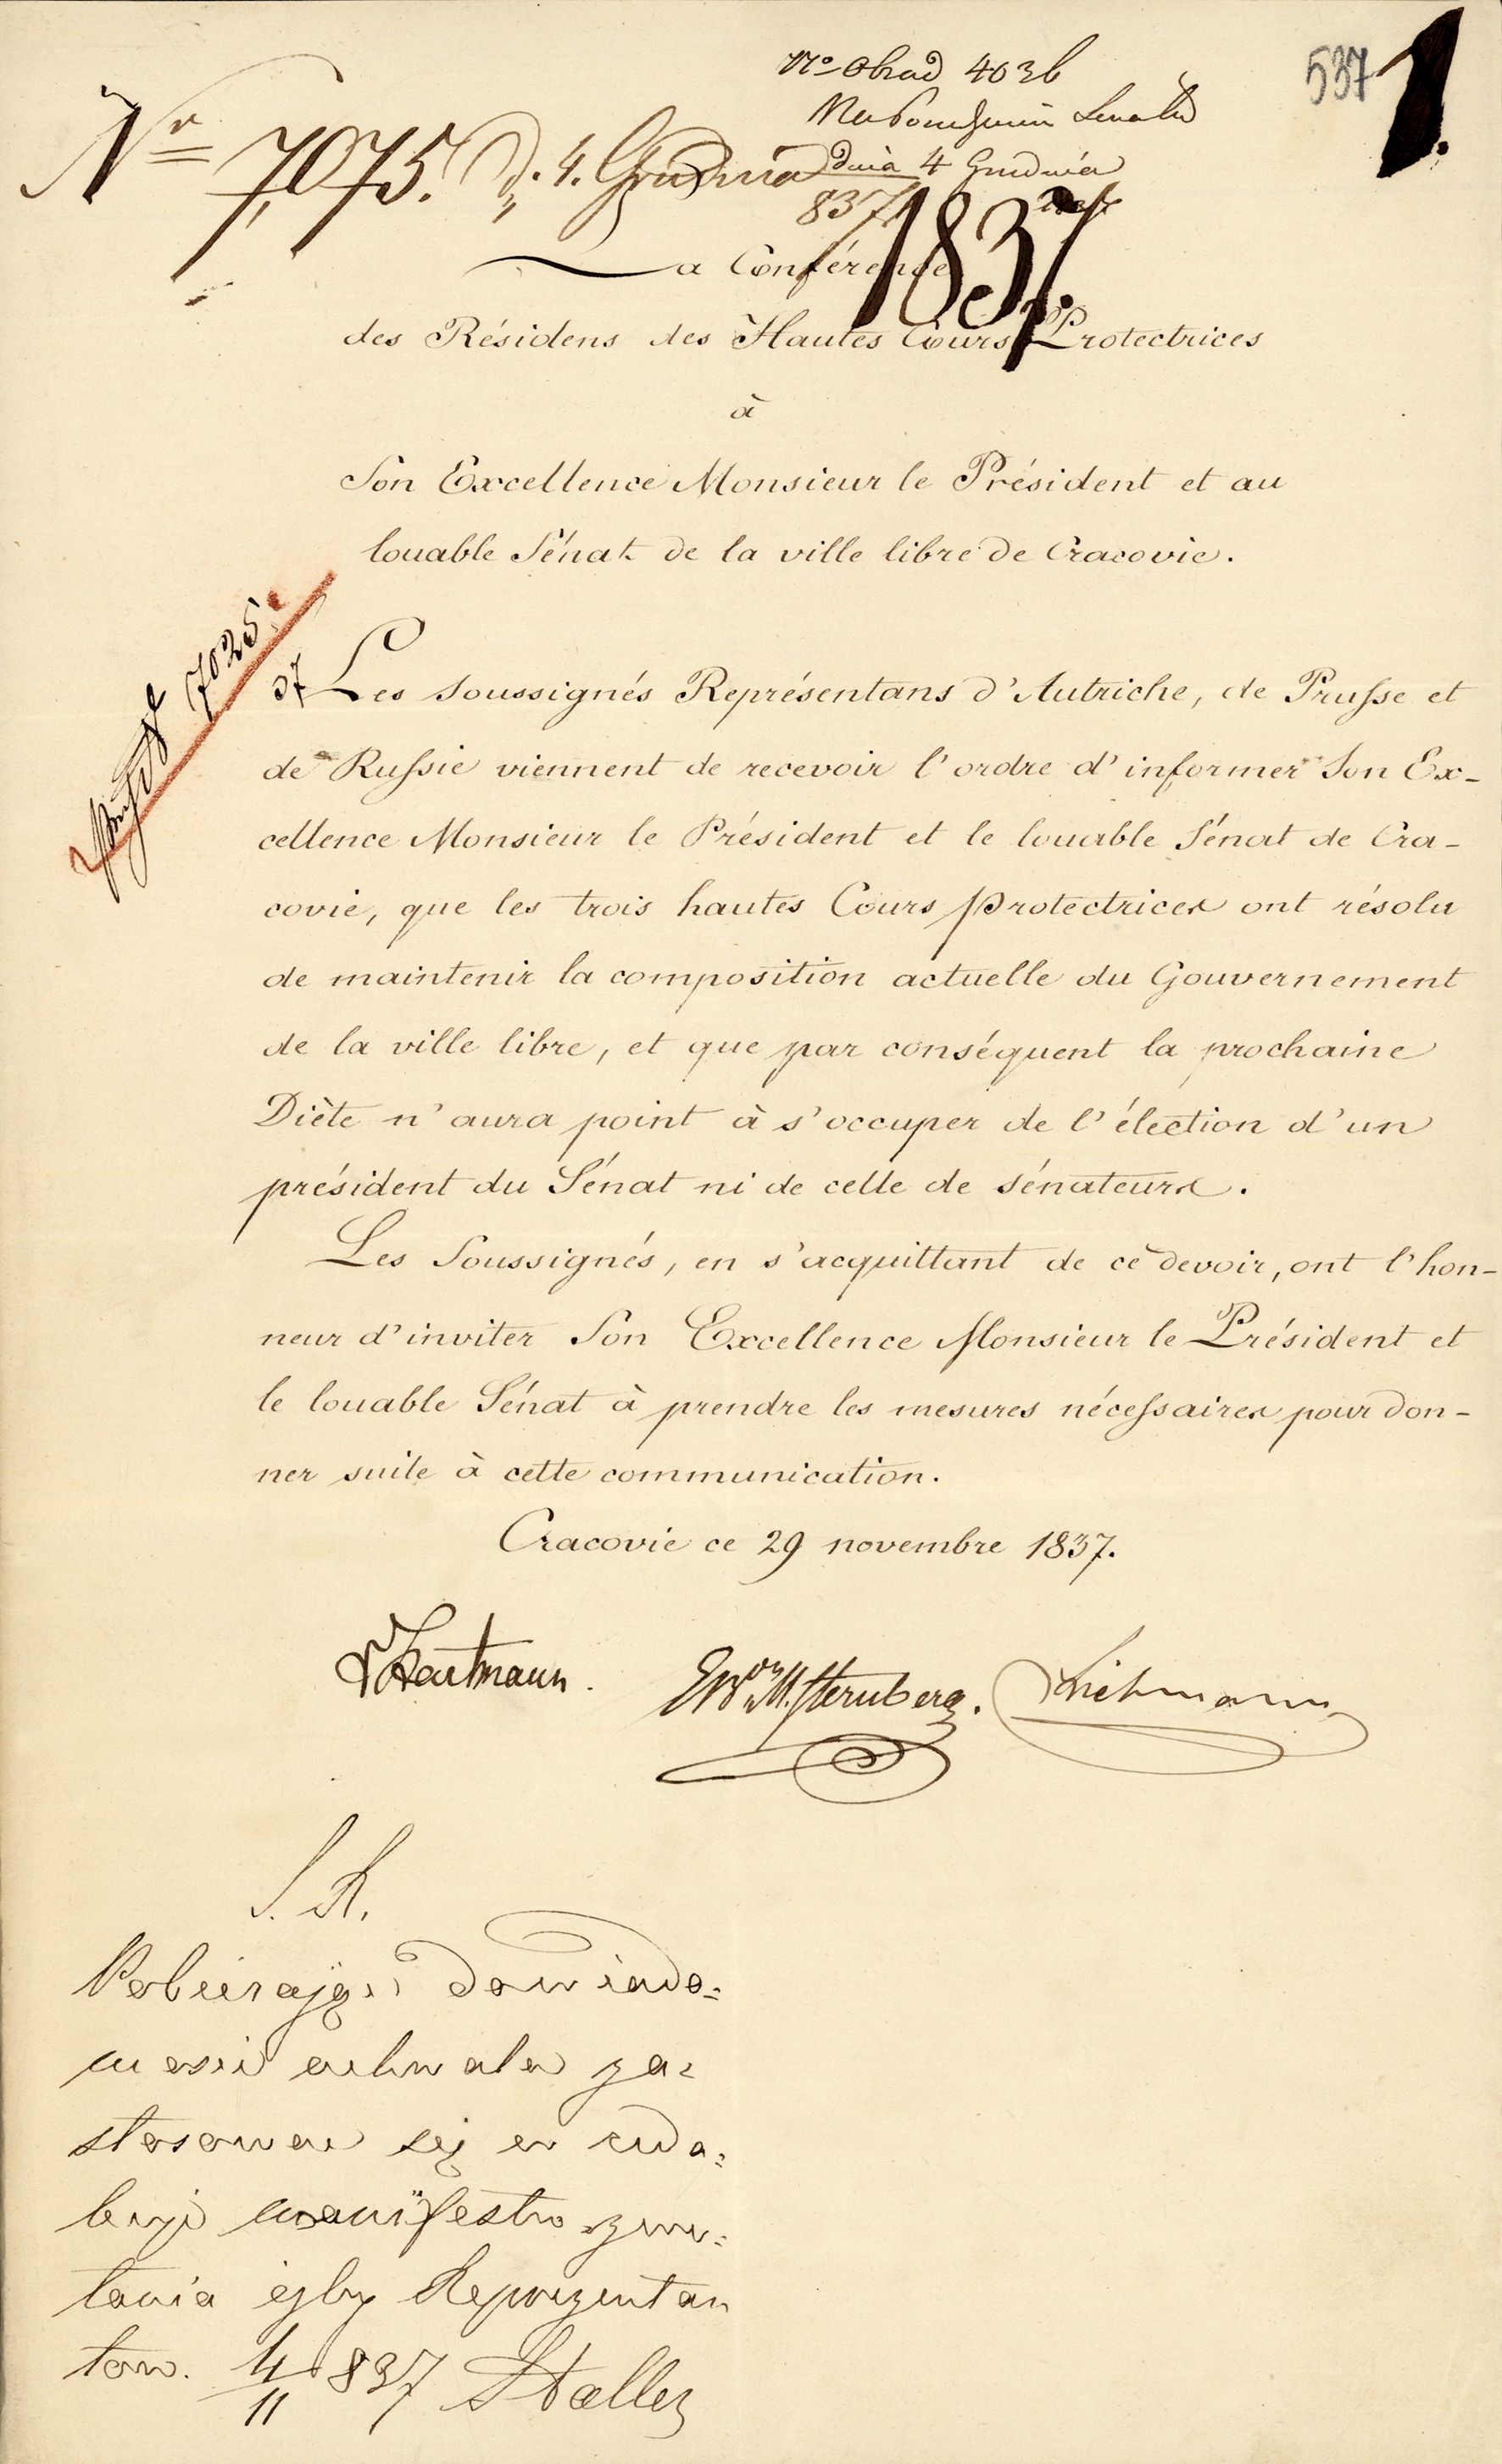 537
1.
No Obrad 4036
Na Posiedzeniu Senatu
dnia 4 Grudnia
837
Nr 7,075. D. 4. Grudnia
1837.
La Conférence
des Résidens des Hautes Cours Protectrices
à
Son Excellence Monsieur le Président et au
louable Sénat de la ville libre de Cracovie.
7025.
37
Les soussignés Représentans d'Autriche, de Prusse et
de Russie viennent de recevoir l'ordre d'informer Son Ex-
cellence Monsieur le Président et le louable Sénat de Cra-
covie, que les trois hautes Cours protectrices ont résolu
de maintenir la composition actuelle du Gouvernement
de la ville libre, et que par conséquent la prochaine
Diète n'aura point à s'occuper de l'élection d'un
président du Sénat ni de celle de sénateurs.
Les Soussignés, en s'acquittant de ce devoir, ont l'hon-
neur d'inviter Son Excellence Monsieur le Président et
le louable Sénat à prendre les mesures nécessaires pour don-
ner suite à cette communication.
Cracovie ce 29 novembre 1837.
Hartmann. Sternberg. Liehmann
S. R.
do wiado=
za=
się
manifestu zwo=
łania izby Reprezentan
tow. 4/11 837